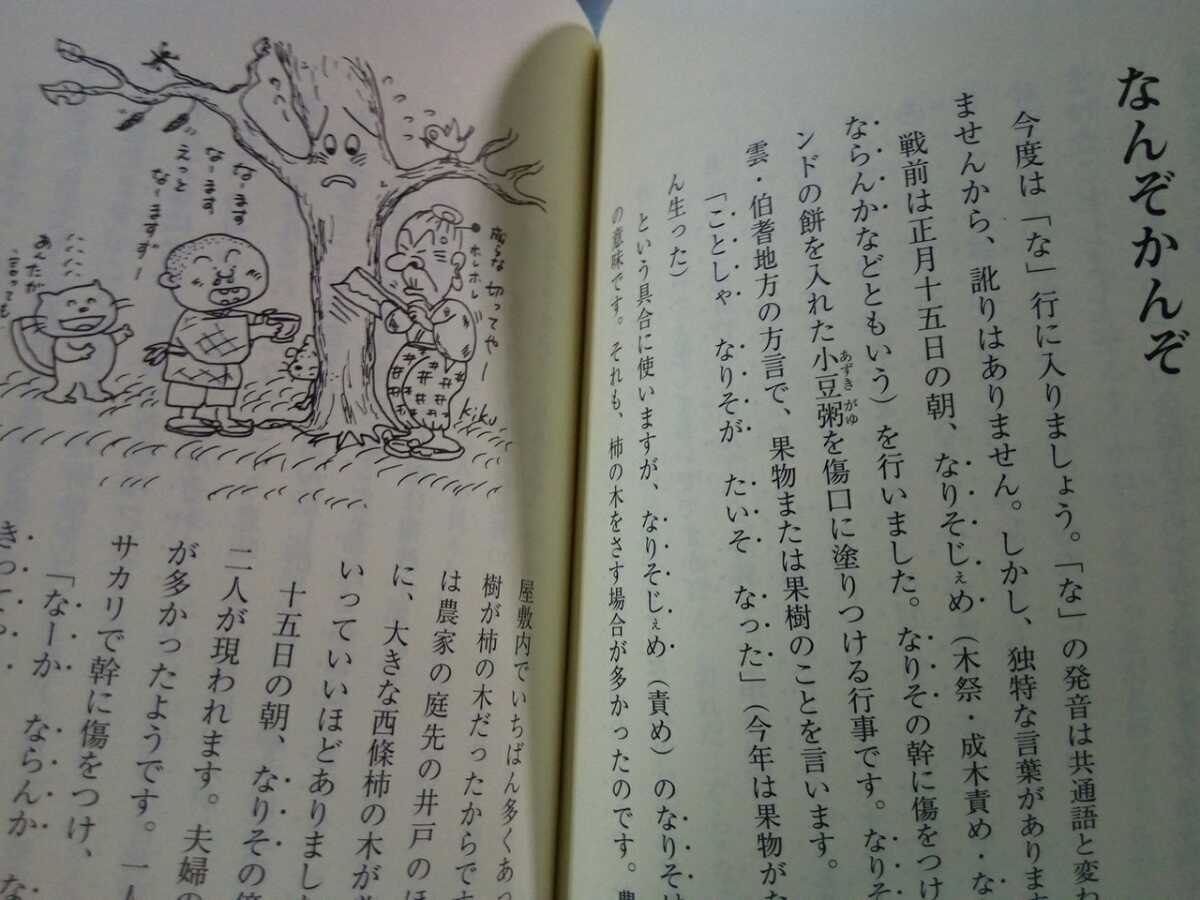 なんぞかんぞ
今度は「な」行に入りましょう。「な」の発音は共通語と変わ
ませんから、訛りはありません。しかし、独特な言葉がありま
戦前は正月十五日の朝、なりそじぇめ（木祭・成木責め・な
ならんかなどともいう）を行いました。なりその幹に傷をつけ
ンドの餅を入れた小豆粥を傷口に塗りつける行事です。なりそ
雲・伯耆地方の方言で、果物または果樹のことを言います。
「ことしゃ なりそが たいそ なった」（今年は果物がた
ん生った）
という具合に使いますが、なりそじぇめ（責め）のなりそは
の意味です。それも、柿の木をさす場合が多かったのです。農
成るな 切ってやー
ホレホレ
kiku
なーます
なーます
えっと
なーますずー
あんたが
言っても
屋敷内でいちばん多くあっ
樹が柿の木だったからです
は農家の庭先の井戸のほ
に、大きな西條柿の木が
いっていいほどありまし
十五日の朝、なりその
二人が現われます。夫婦の
が多かったようです。一人
サカリで幹に傷をつけ、
「なーか ならんか な
きってやっ